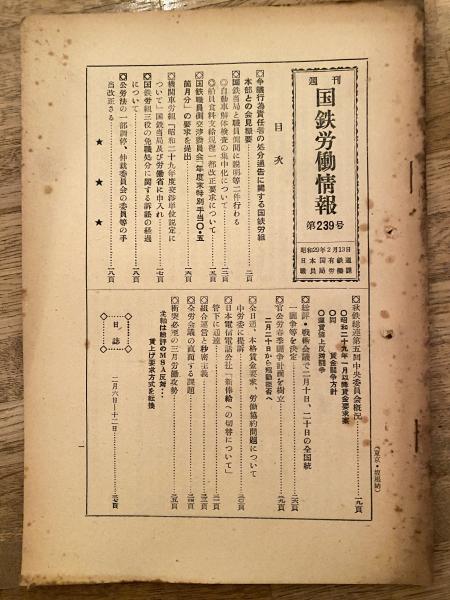 週刊
国鉄労働情報
第239号
昭和29年2月13日
日本国有鉄道
職員局労働課
目次
◎争議行為責任者の処分通告に関する国鉄労組
本部との会見概要
二頁
◎国鉄当局と職員側間に説明等二件行わる
○自動車解体検査の集中化について
三頁
○船員食料支給規程一部改正要求について
一五頁
◎国鉄職員側交渉委員会「年度末特別手当〇・五
箇月分」の要求を提出
一六頁
◎機関車労組「昭和二十九年度交渉単位設定に
ついて」国鉄当局及び労働省に申入れ
一七頁
◎国鉄労組三役の免職処分に関する訴訟の経過
について
一八頁
◎公労法の一部調停、仲裁委員会の委員等の手
当改正さる
一八頁
★ ★ ★
◎秋鉄総連第五回中央委員会概況
一九頁
○昭和二十九年一月以降賃金要求案
○同 賃金闘争方針
○運賃値上反対闘争
◎総評・戦術会議で二月十日、二十日の全国統
一闘争等を決定
◎官公労春季闘争計画を樹立
一九頁
二月二十日から庭動態者へ
◎全日通、本格賃金要求、労働協約問題について
中労委に提訴
◎日本電信電話公社「新俸給への切替について」
管下に通達
◎組合運営と秘密主義
◎全労会議の直面する課題
◎衝突必至の三月労働攻勢
主軸は総評のMSA反対・・・
賃上げ要求方式を転換
◇日誌◇
二月六日―十二日